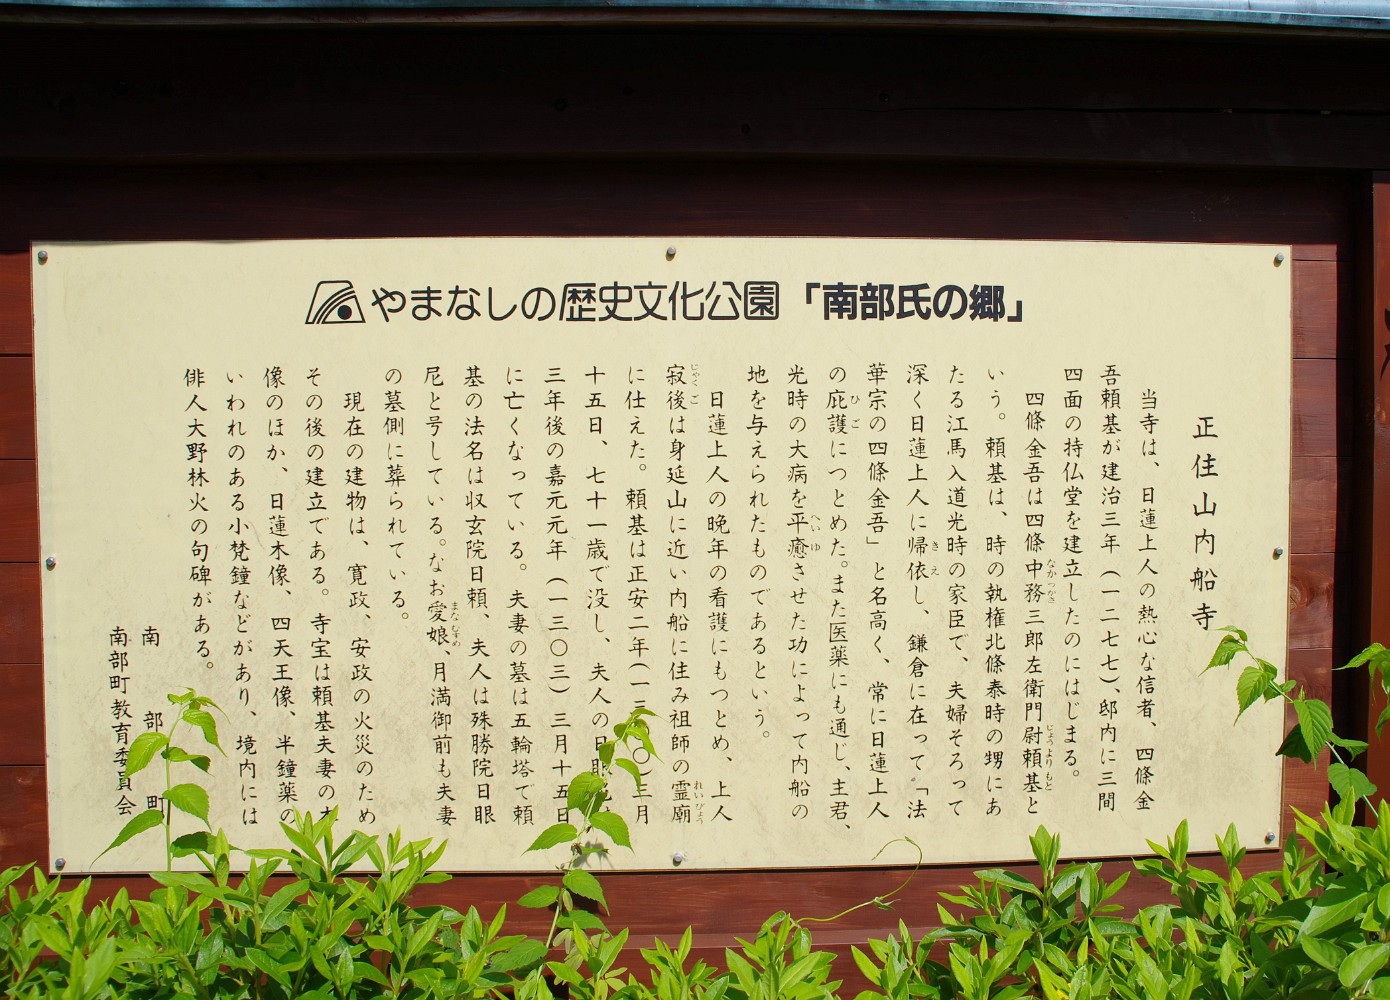 やまなしの歴史文化公園「南部氏の郷」
正住山内船寺
当寺は、日蓮上人の熱心な信者、四條金
吾頼基が建治三年(一二七七)、邸内に三間
四面の持仏堂を建立したのにはじまる。
四條金吾は四條中務三郎左衛門尉頼基と
いう。頼基は、時の執権北條泰時の甥にあ
たる江馬入道光時の家臣で、夫婦そろって
深く日蓮上人に帰依し、鎌倉に在って「法
華宗の四條金吾」と名高く、常に日蓮上人
の庇護につとめた。また医薬にも通じ、主君、
光時の大病を平癒させた功によって内船の
地を与えられたものであるという。
日蓮上人の晩年の看護にもつとめ、上人
寂後は身延山に近い内船に住み祖師の霊廟
に仕えた。頼基は正安二年(一三〇〇)三月
十五日、七十一歳で没し、夫人の日眼
三年後の嘉元元年(一三〇三)三月十五日
に亡くなっている。夫妻の墓は五輪塔で頼
基の法名は収玄院日頼、夫人は殊勝院日眼
尼と号している。なお愛娘、月満御前も夫妻
の墓側に葬られている。
現在の建物は、寛政、安政の火災のため
その後の建立である。寺宝は頼基夫妻の木
像のほか、日蓮木像、四天王像、半鐘薬の
いわれのある小梵鐘などがあり、境内には
俳人大野林火の句碑がある。
南部町
南部町教育委員会